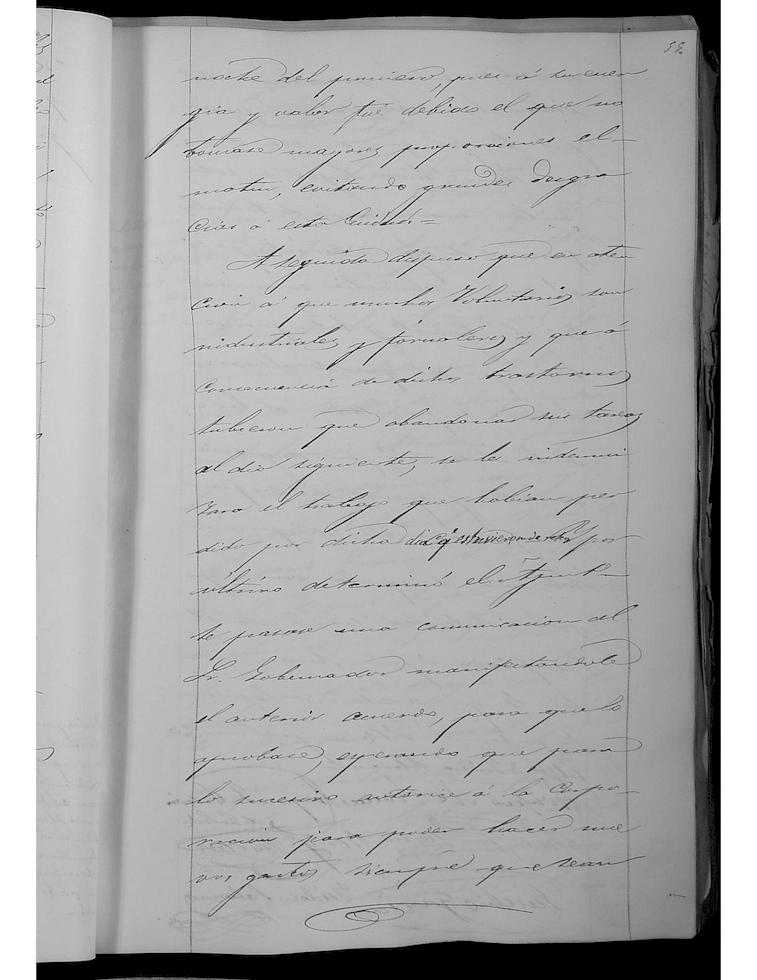 noche del primero, pues á su ener
gia y valor fué debido el que no
tomase mayores proporciones el
motin, evitando grandes desgra
cias á esta Ciudad.=
A seguida dispuso que en aten
cion á que muchos Voluntarios son
industriales y jornaleros y que á
consecuencia de dichos trastornos
tubieron que abandonar sus tareas
al dia siguiente, se les indemni
zara el trabajo que habian per
dido por dicho dia q.e estuvieron de
por
ultimo determinó el Ayunt.
se pasase una comunicacion al
Sr. Gobernador manifestandole
el anterior acuerdo, para que lo
aprobase, esperando que para
lo sucesivo autorice á la Corpo-
racion para poder hacer nue
vos gastos siempre que sean